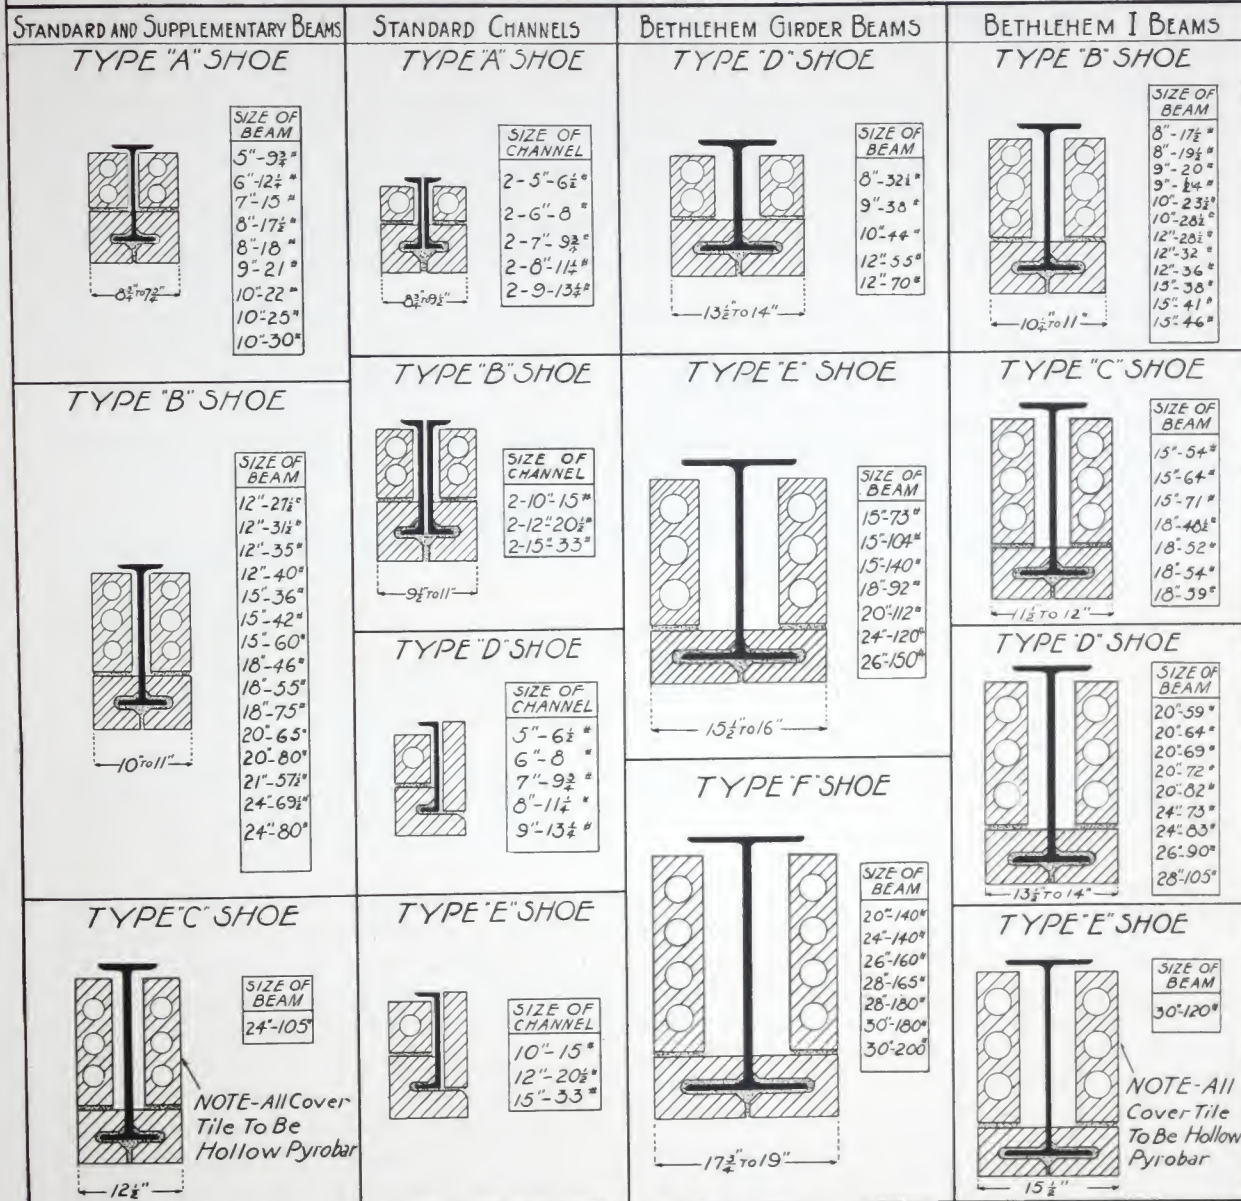 STANDARD AND SUPPLEMENTARY BEAMS
TYPE "A" SHOE
SIZE OF
BEAM
5"-9¾#
6"-12¼#
7"-15#
8"-17½#
8"-18#
9"-21#
10"-22#
10"-25#
10"-30#
8¾" TO 7¾"
TYPE "B" SHOE
SIZE OF
BEAM
12"-27½#
12"-31½#
12"-35#
12"-40#
15"-36#
15"-42#
15"-60#
18"-46#
18"-55#
18"-75#
20"-65#
20"-80#
21"-57½#
24"-69½#
24"-80#
10" TO 11"
TYPE "C" SHOE
SIZE OF
BEAM
24"-105#
NOTE-All Cover
Tile To Be
Hollow Pyrobar
12½"
STANDARD CHANNELS
TYPE "A" SHOE
SIZE OF
CHANNEL
2-5"-6½#
2-6"-8#
2-7"-9¾#
2-8"-11¼#
2-9-13¼#
8¾" TO 9½"
TYPE "B" SHOE
SIZE OF
CHANNEL
2-10"-15#
2-12"-20½#
2-15"-33#
9½" TO 11"
TYPE "D" SHOE
SIZE OF
CHANNEL
5"-6½#
6"-8#
7"-9¾#
8"-11¼#
9"-13¼#
TYPE "E" SHOE
SIZE OF
CHANNEL
10"-15#
12"-20½#
15"-33#
BETHLEHEM GIRDER BEAMS
TYPE "D" SHOE
SIZE OF
BEAM
8"-32½#
9"-38#
10"-44#
12"-55#
12"-70#
13½" TO 14"
TYPE "E" SHOE
SIZE OF
BEAM
15"-73#
15"-104#
15"-140#
18"-92#
20"-112#
24"-120#
26"-150#
15½" TO 16"
TYPE "F" SHOE
SIZE OF
BEAM
20"-140#
24"-140#
26"-160#
28"-165#
28"-180#
30"-180#
30"-200#
17¾" TO 19"
BETHLEHEM I BEAMS
TYPE "B" SHOE
SIZE OF
BEAM
8"-17½#
8"-19½#
9"-20#
9"-24#
10"-23½#
10"-28½#
12"-28½#
12"-32#
12"-36#
15"-38#
15"-41#
15"-46#
10¼" TO 11"
TYPE "C" SHOE
SIZE OF
BEAM
15"-54#
15"-64#
15"-71#
18"-48½#
18"-52#
18"-54#
18"-59#
11½" TO 12"
TYPE "D" SHOE
SIZE OF
BEAM
20"-59#
20"-64#
20"-69#
20"-72#
20"-82#
24"-73#
24"-83#
26"-90#
28"-105#
13½" TO 14"
TYPE "E" SHOE
SIZE OF
BEAM
30"-120#
NOTE-All
Cover Tile
To Be Hollow
Pyrobar
15½"